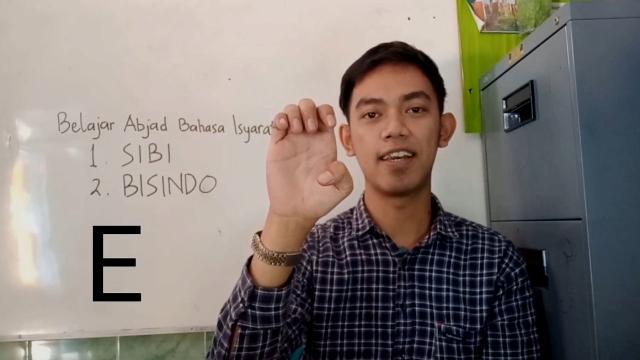 Belajar Abjad Bahasa Isyara
1. SIBI
2. BISINDO
E